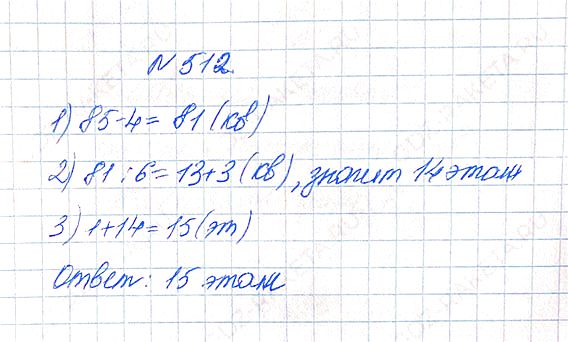 N 512.
1) 85-4= 81 (кв)
2) 81 : 6= 13+3 (кв), значит 14 этаж
3) 1+14= 15 (эт)
Ответ: 15 этаж